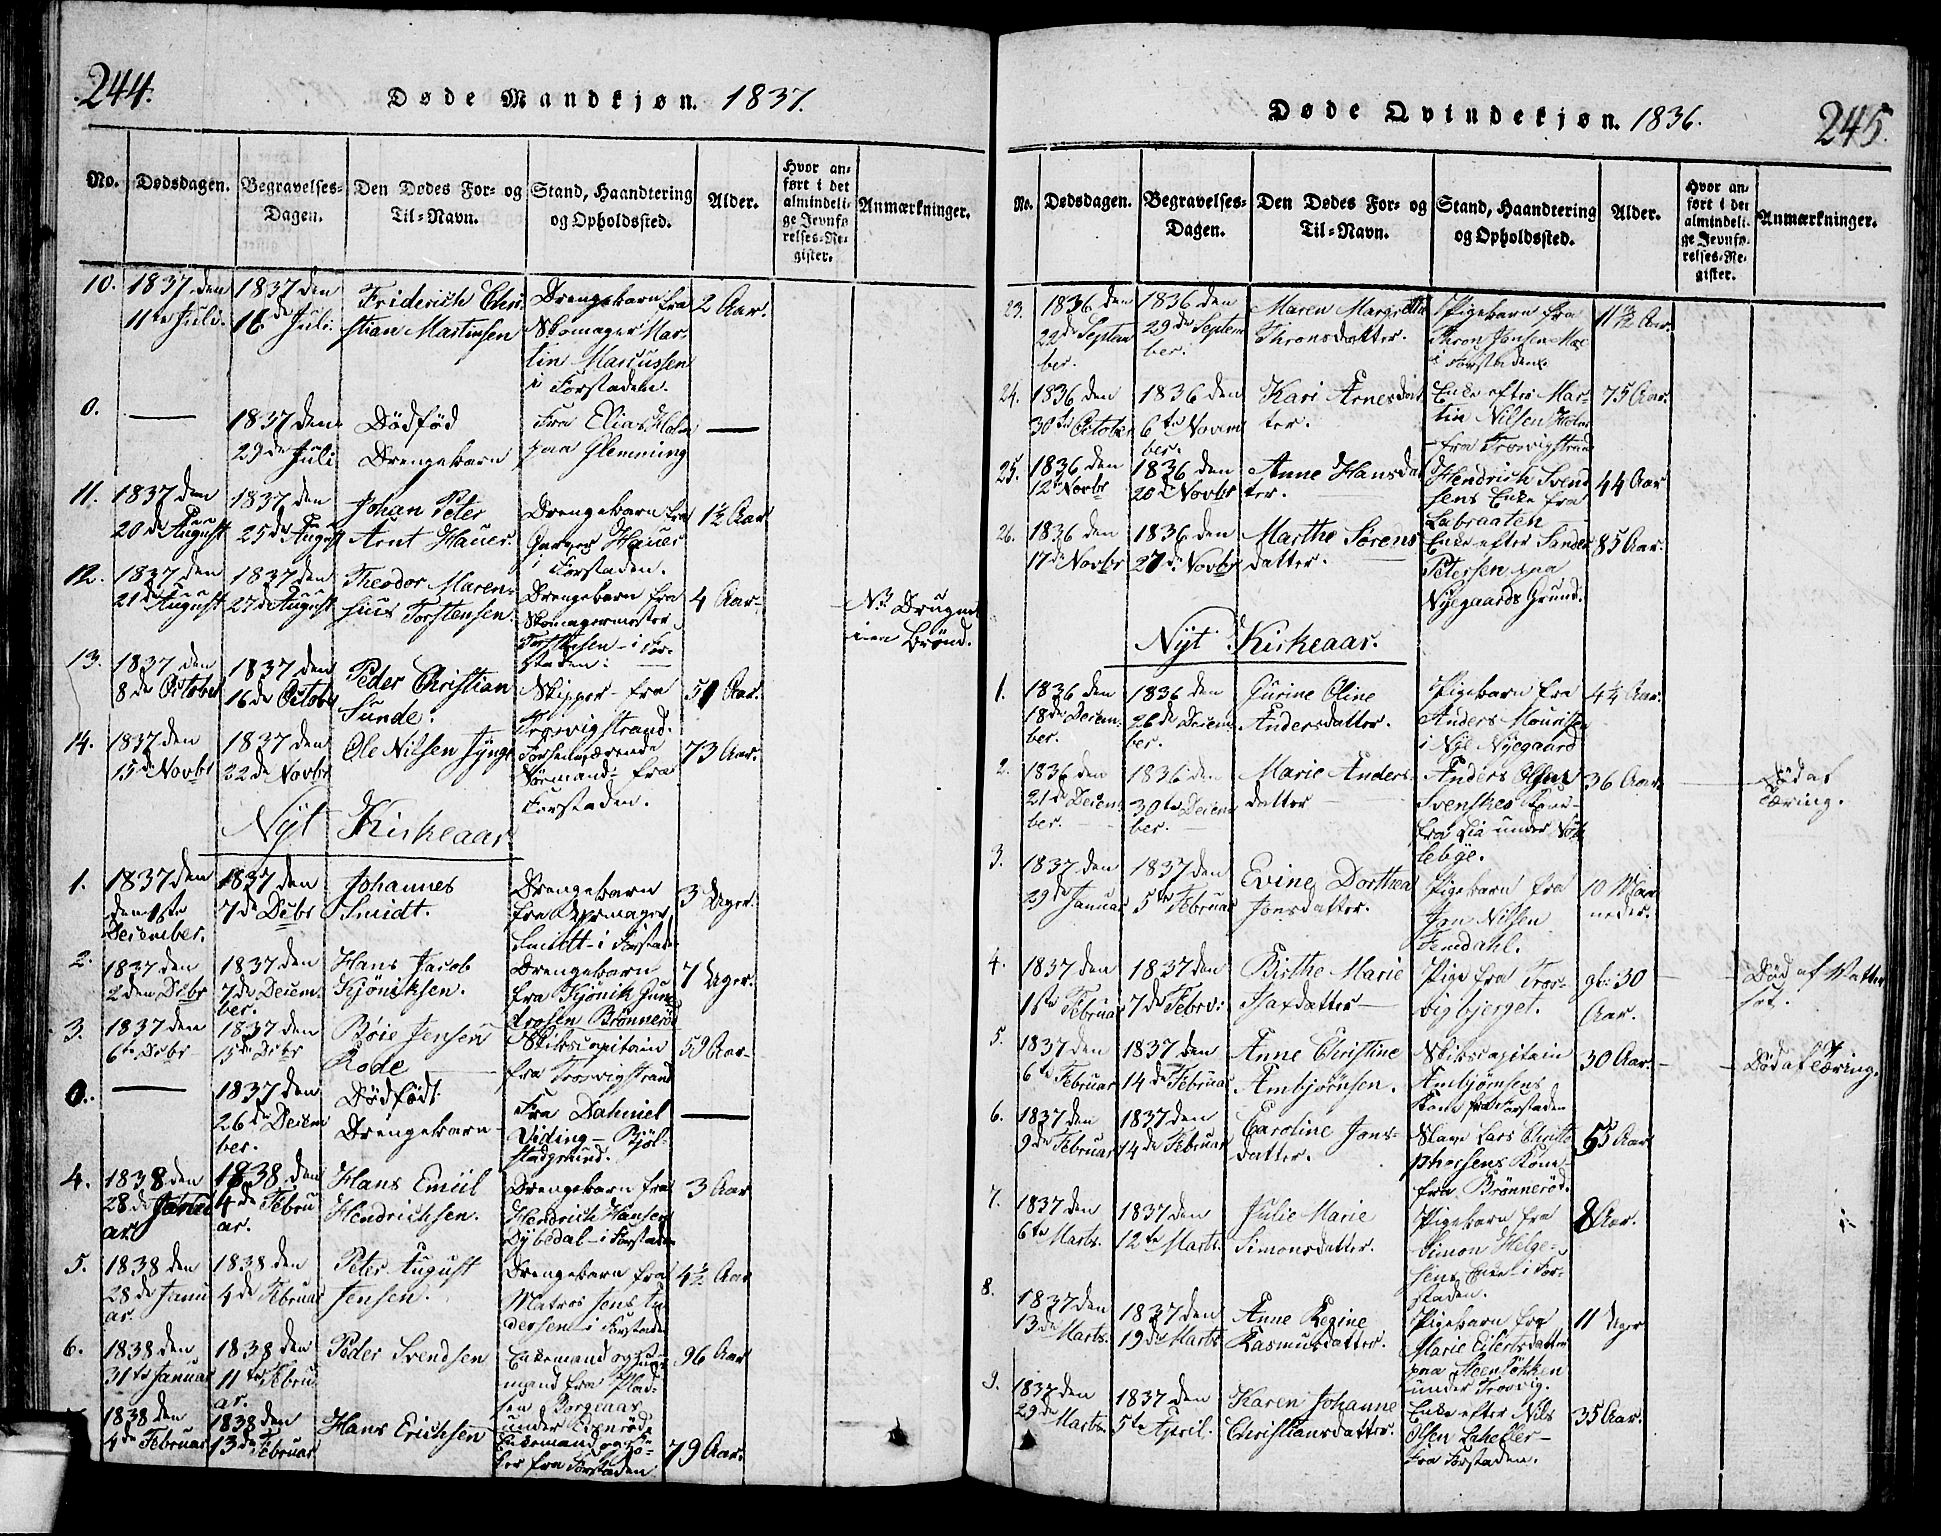 244.
Døde Mandkjøn. 1837.
No.
Dødsdagen.
Begravelses-Dagen.
Den Dødes For- og Til-Navn.
Stand, Haandtering og Opholdssted.
Alder.
Hvor anført i det almindelige Jevnførelses-Register.
Anmærkninger.
10. 1837 den 11te Juli. 1837 den 16de Juli. Friderich Christian Martinsen Drengebarn fra Skomager Martin Marcussen i Forstaden. 2 Aar.
0. — 1837 den 29de Juli Dödföd Drengebarn Fra Elias Holm paa Glemming —
11. 1837 den 20de August 1837 den 25de August Johan Peter Arnt Hauer. Drengebarn fra Hauer i Forstaden. 1½ Aar
12. 1837 den 21de August 1837 den 27de August Theodor Marenhius Torstensen. Drengebarn fra Skomagermester Torstensen i Forstaden. 4 Aar. i en Brönd.
13. 1837 den 8de October 1837 den 16de October Peder Christian Sunde. Skipper fra Trosvigstrand. 51 Aar.
14. 1837 den 15de Novbr 1837 den 22de Novbr Ole Nilsen Forhenværende fra Forstaden. 73 Aar.
Nyt Kirkeaar
1. 1837 den den 1ste December. 1837 den 7de Decbr Johannes Smidt. Drengebarn fra Smidt i Forstaden 3 Uger.
2. 1837 den 2den Decbr 1837 den 7de December. Hans Jacob Kjöniksen. Drengebarn fra Kjönik Brönneröd 7 Uger.
3. 1837 den 6te Decbr 1837 den 15de Decbr Böie Jensen Rode Skibscapitain fra Trosvigstrand 59 Aar
0. — 1837 den 26de December. Dödfödt Drengebarn Fra Dahniel Viding — —
4. 1838 den 28de Januar. 1838 den 4de Februar. Hans Emiil Hendrichsen. Drengebarn fra Hendrich Hansen Dybedal i Forstaden 3 Aar
5. 1838 den 28de Januar. 1838 den 4de Februar Peter August Jensen. Drengebarn fra Matros Jens Andersen i Forstaden 4½ Aar
6. 1838 den 31te Januar 1838 den 11te Februar. Peder Svendsen Enkemand og fra Pladsen under 96 Aar
1838 den 4de Februar 1838 den 13de Februar Hans Erichsen Enkemand og fra Forstaden 79 Aar.
245.
Døde Qvindekjøn. 1836.
No.
Dødsdagen.
Begravelses-Dagen.
Den Dødes For- og Til-Navn.
Stand, Haandtering og Opholdssted.
Alder.
Hvor anført i det almindelige Jevnførelses-Register.
Anmærkninger.
23. 1836 den 22de September. 1836 den 29de September. Maren Margrethe Thronsdatter. Pigebarn fra Thron Jensen i Forstaden. 11 Aar.
24. 1836 den 30te October 1836 den 6te November. Kari Arnesdatter. Enke efter Martin Nilsen Holm fra Trosvigstrand 75 Aar.
25. 1836 den 12te Novbr 1836 den 20de Novbr Anne Hansdatter. Hendrich Svendsens Enke fra Labraaten 44 Aar
26. 1836 den 17de Novbr 1836 den 27de Novbr Marthe Sörensdatter. Enke efter Sander Petersen paa Nyegaards Grund. 85 Aar.
Nyt Kirkeaar.
1. 1836 den 18de December. 1836 den 26de December. Gurine Oline Andersdatter. Pigebarn fra Anders Mouritsen i Nye Nyegaard 4¼ Aar.
2. 1836 den 21de December. 1836 den 30te December. Marie Andersdatter Anders Olsens Svenskes Kone fra Lia under 36 Aar. Död af Tæring.
3. 1837 den 29de Januar 1837 den 5te Februar Evine Dorthea Jonsdatter. Pigebarn fra Jon Nilsen Femdahl. 10 Maaneder.
4. 1837 den 1ste Februar 1837 den 7de Febrv: Birthe Marie Isaxdatter Pige fra Trosvigbjerget. 30 Aar. Död af Vattersot.
5. 1837 den 6te Februar 1837 den 14de Februar Anne Christine Ambjörnsen. Skibscapitain Ambjörnsens Kone fra Forstaden 30 Aar. Död af Tæring.
6. 1837 den 9de Februar 1837 den 14de Februar Caroline Jonsdatter. Slave Lars Christophersens Kone fra Brönneröd. 55 Aar
7. 1837 den 6te Marts. 1837 den 12te Marts. Julie Marie Simonsdatter. Pigebarn fra Simon Helgesens Enke i Forstaden. 8 Aar.
8. 1837 den 13de Marts. 1837 den 19de Marts Anne Regine Rasmusdatter. Pigebarn fra Marie Eilertsdatter paa Steenlökken under Trosvig. 11 Uger
9. 1837 den 29de Marts 1837 den 5te April. Karen Johanne Christiansdatter. Enke efter Nils Olsen Laheller fra Forstaden. 35 Aar.